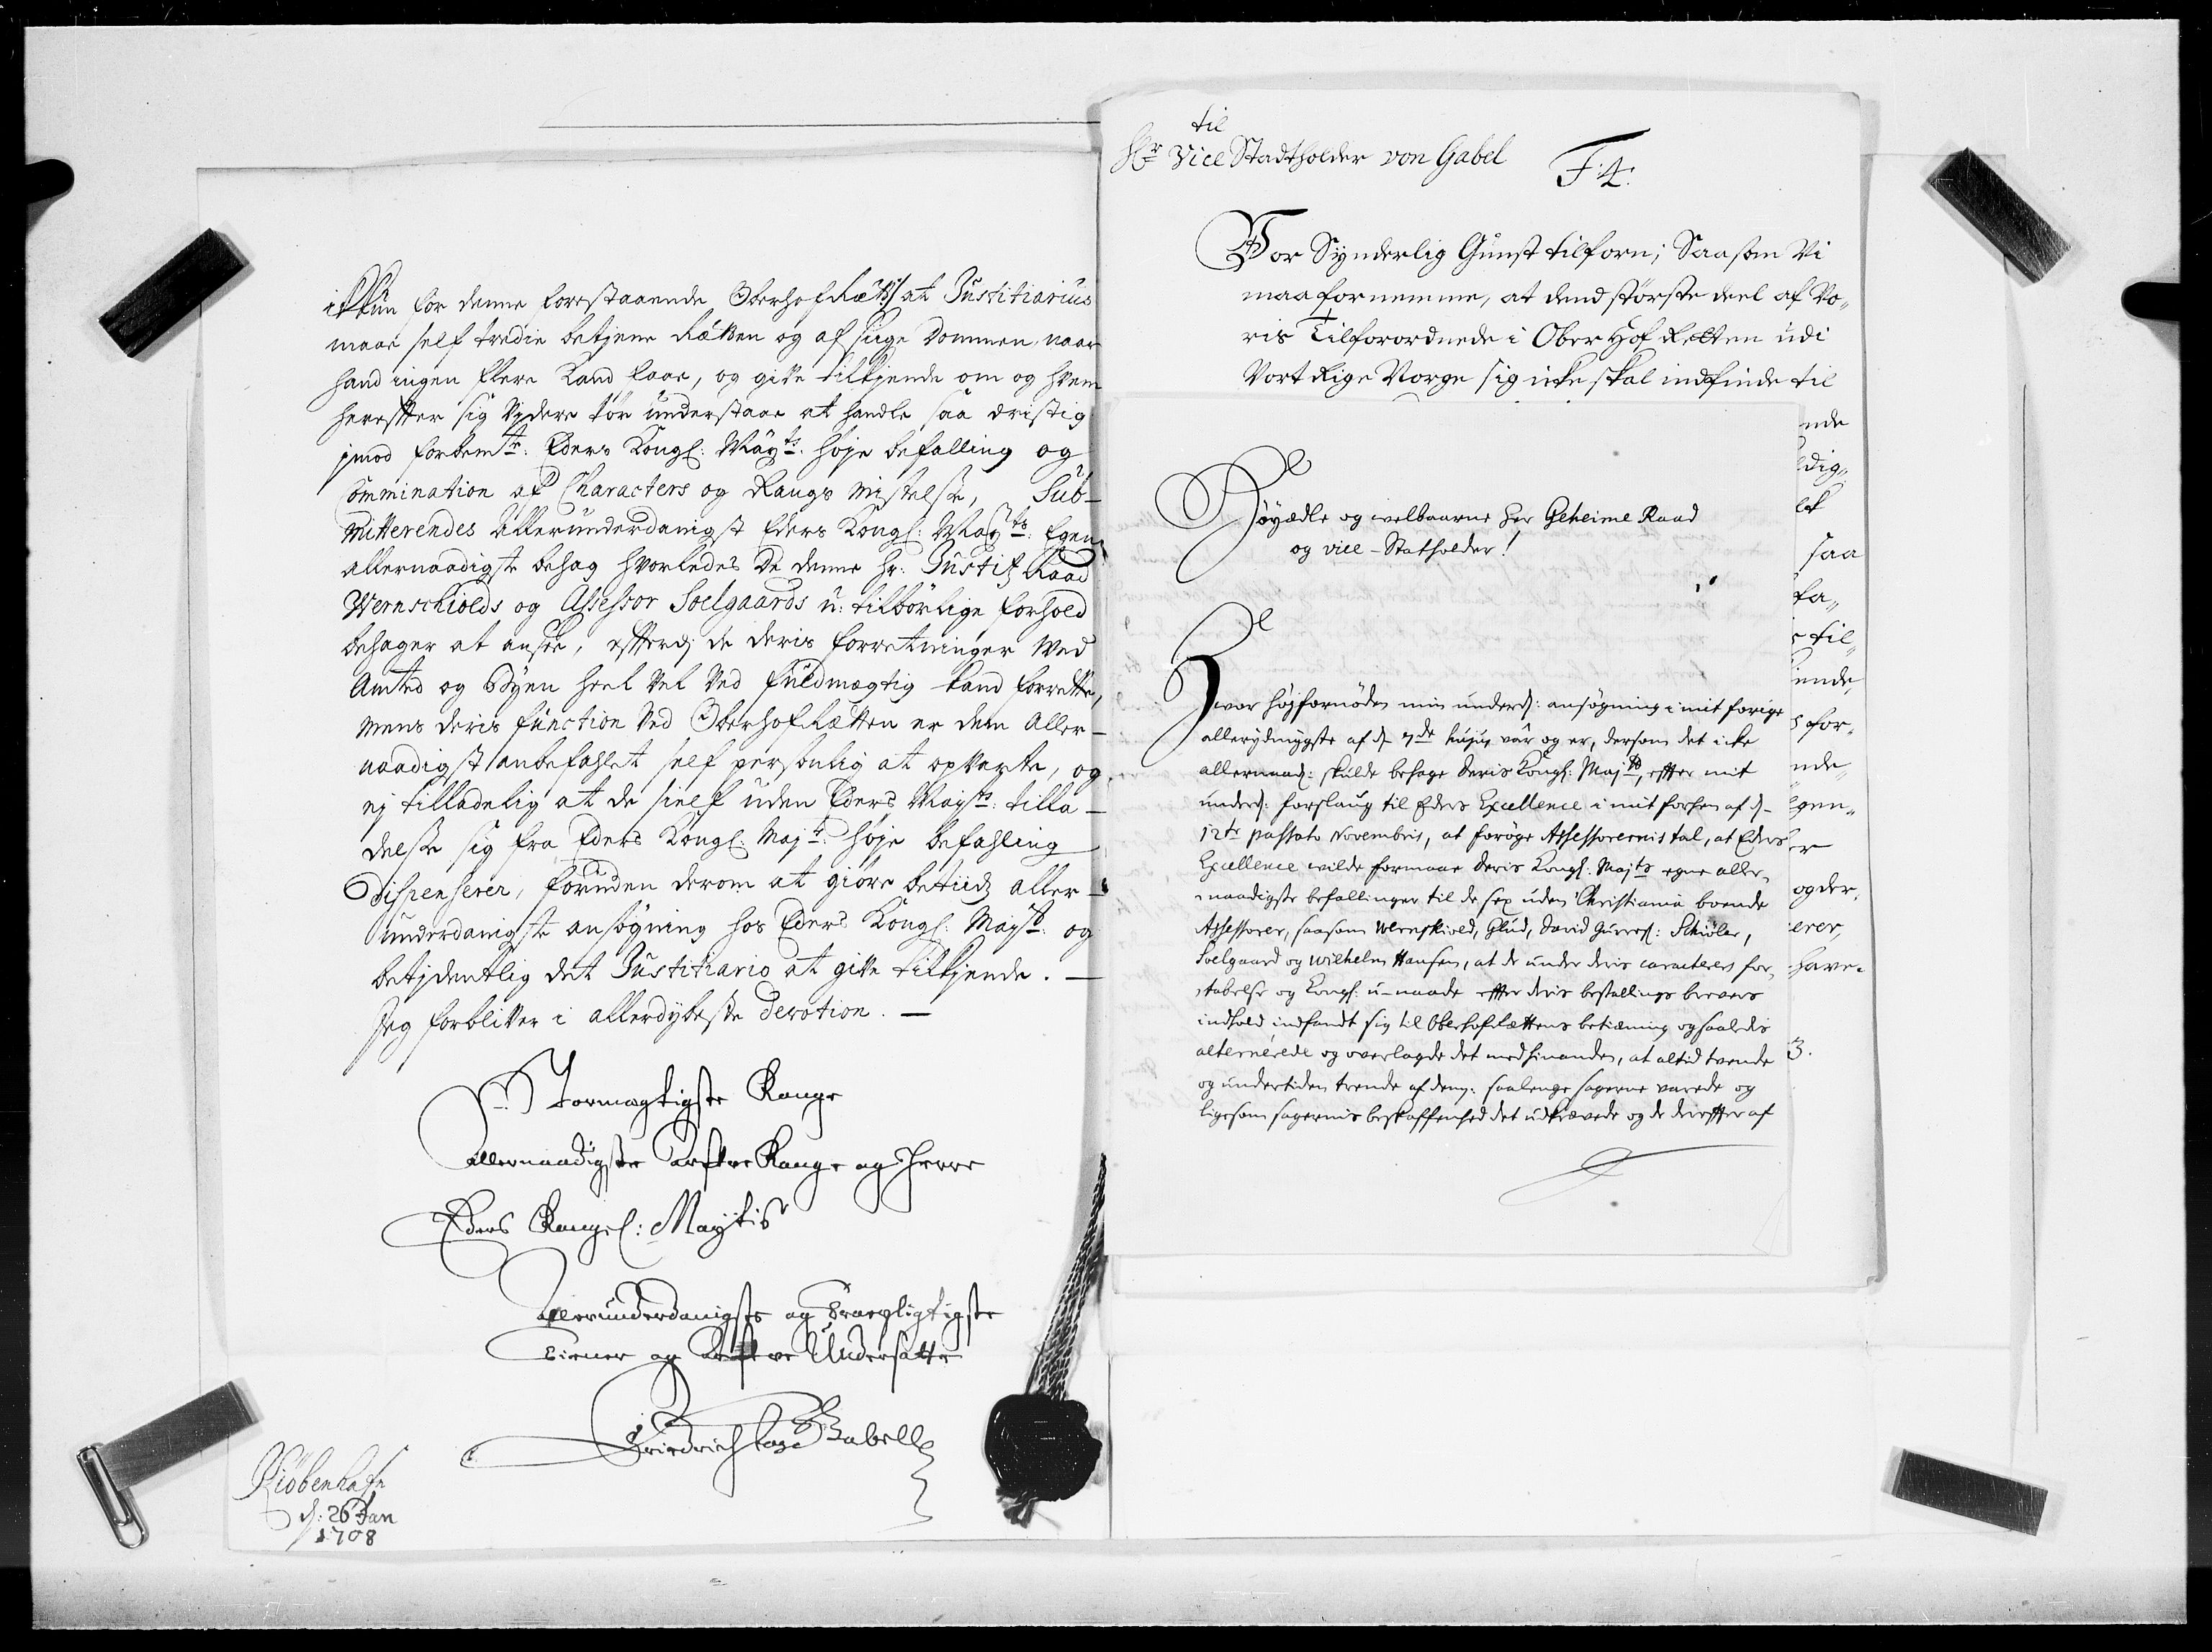 ikkun for denne forestaaende Oberhofrætt, at Justitiarius
maae self tredie betjene Rætten og afsige Dommen, naar
hand ingen flere kand faae, og give tilkjende om og hvem
herefter sig ydere tør understaae at handle saa dristig
imod forbemte: Eders Kongl: Mayts: høje befalling og
Commination af Characters og Rangs mistelse, Sub-
mitterendes allerunderdanigst Eders Kongl: Mayts: Egen
allernaadigste behag hvorledes De denne Hr: Justitz Raad
Wernschiolds og Assessor Soelgaards u-tilbørlige forhold
behager at ansee, efterdj de deris forretninger ved
Amted og Byen heel vel ved fuldmægtig kand forrette,
mens deris function ved Oberhofrætten er dem aller-
naadigst anbefahlet self personlig at opvarte, og
ej tilladelig at de sielf uden Eders Mayts: tilla-
delse sig fra Eders Kongl: Mayts: høje befahling
dispenserer, foruden derom at giøre betiids aller-
underdanigste ansøgning hos Eders Kongl: Mayts: og
betjdentlig det Justitiario at give tilkjende. —
Jeg forbliver i allerdybeste devotion. —
Stormægtigste Konge
Allernaadigste Arfve Konge og Herre
Eders Kongel: Maytis
Allerunderdanigste og Troepligtigste
Tiener og Arfve Undersatte
Friedrich Gabell
Kiøbenhafn
d: 26 Jan
1708
til
Hr Vice Stadtholder von Gabel
F. 4.
Vor Synderlig Gunst tilforn; Saasom Vi
maa fornemme, at dend største deel af Vo-
ris Tilforordnede i Ober Hof Retten udi
Vort Rige Norge sig icke skal indfinde til
nde
dig-
saa
fa-
til-
ende,
for-
nde-
gen-
er
og der-
erer,
have-
3.
Høyædle og welbaarne Her Geheime Raad
og vice-Statholder!
Hvor højfornøden min underd: ansøgning i mit forige
allerydmygste af d. 7de hujus vår og er, dersom det icke
allernaad: skulde behage deris Kongl: Majts, efter mit
underd: forslaug til Eders Excellence i mit forhen af d-
12te passato Novembris, at forøge Assessorernis tal, at Eders
Excellence wilde formaae deris Kongl: Majts egne aller-
naadigste befallinger til de sex uden Christiania boende
Assessorer, saasom Wernskiold, Glud, David Schiøler,
Soelgaard og Wilhelm Hansen, at de under deris caracteres for-
tabelse og Kongl: u-naade efter deris bestallings brevers
indhold indfandt sig til Oberhofrættens betiening og saaledis
alternérede og overlagde det med hinanden, at altid tvende
og undertiden trende af dem: saalenge sagerne varede og
ligesom sagernis beskaffenhed det udkrævede og de derefter af